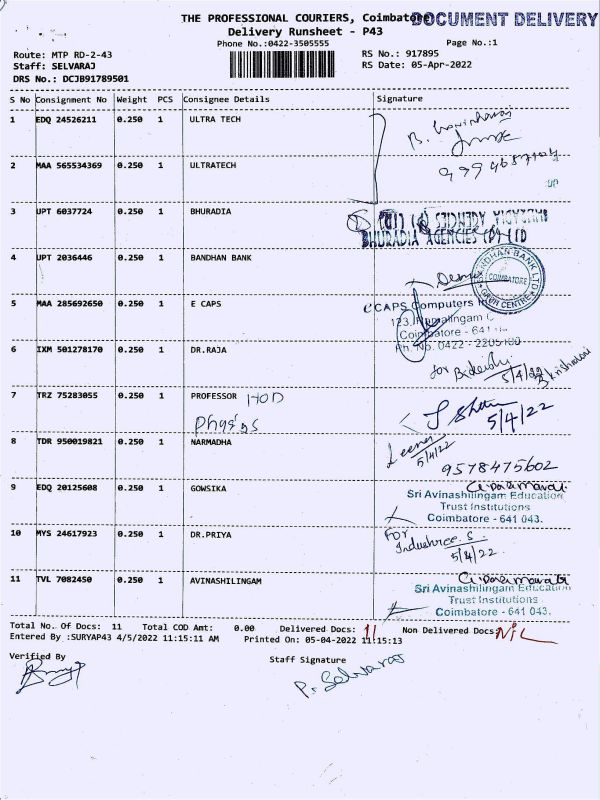 THE PROFESSIONAL COURIERS, Coimbatore
DOCUMENT DELIVERY
Delivery Runsheet - P43
Phone No.:0422-3505555
Page No.:1
Route: MTP RD-2-43
RS No.: 917895
Staff: SELVARAJ
RS Date: 05-Apr-2022
DRS No.: DCJB91789501
S No Consignment No Weight PCS Consignee Details Signature
1 EDQ 24526211 0.250 1 ULTRA TECH
2 MAA 565534369 0.250 1 ULTRATECH
3 UPT 6037724 0.250 1 BHURADIA
BHURADIA AGENCIES (P) LTD
4 UPT 2036446 0.250 1 BANDHAN BANK
BANDHAN BANK LTD
COIMBATORE
CENTRE
5 MAA 285692650 0.250 1 E CAPS
CAPS Computers
123, Ramalingam
Coimbatore - 641
Ph. No. 0422 - 2205100
6 IXM 501278170 0.250 1 DR.RAJA
for
5/4/22
7 TRZ 75283055 0.250 1 PROFESSOR HOD
Physics
5/4/22
8 TDR 950019821 0.250 1 NARMADHA
Leena
5/4/22
9578475602
9 EDQ 20125608 0.250 1 GOWSIKA
Sri Avinashilingam Education
Trust Institutions
Coimbatore - 641 043.
10 MYS 24617923 0.250 1 DR.PRIYA
For
5/4/22.
11 TVL 7082450 0.250 1 AVINASHILINGAM
Sri Avinashilingam Education
Trust Institutions
Coimbatore - 641 043.
Total No. Of Docs: 11 Total COD Amt: 0.00 Delivered Docs: 11 Non Delivered Docs: NIL
Entered By :SURYAP43 4/5/2022 11:15:11 AM Printed On: 05-04-2022 11:15:13
Verified By
Staff Signature
P. Selvaraj